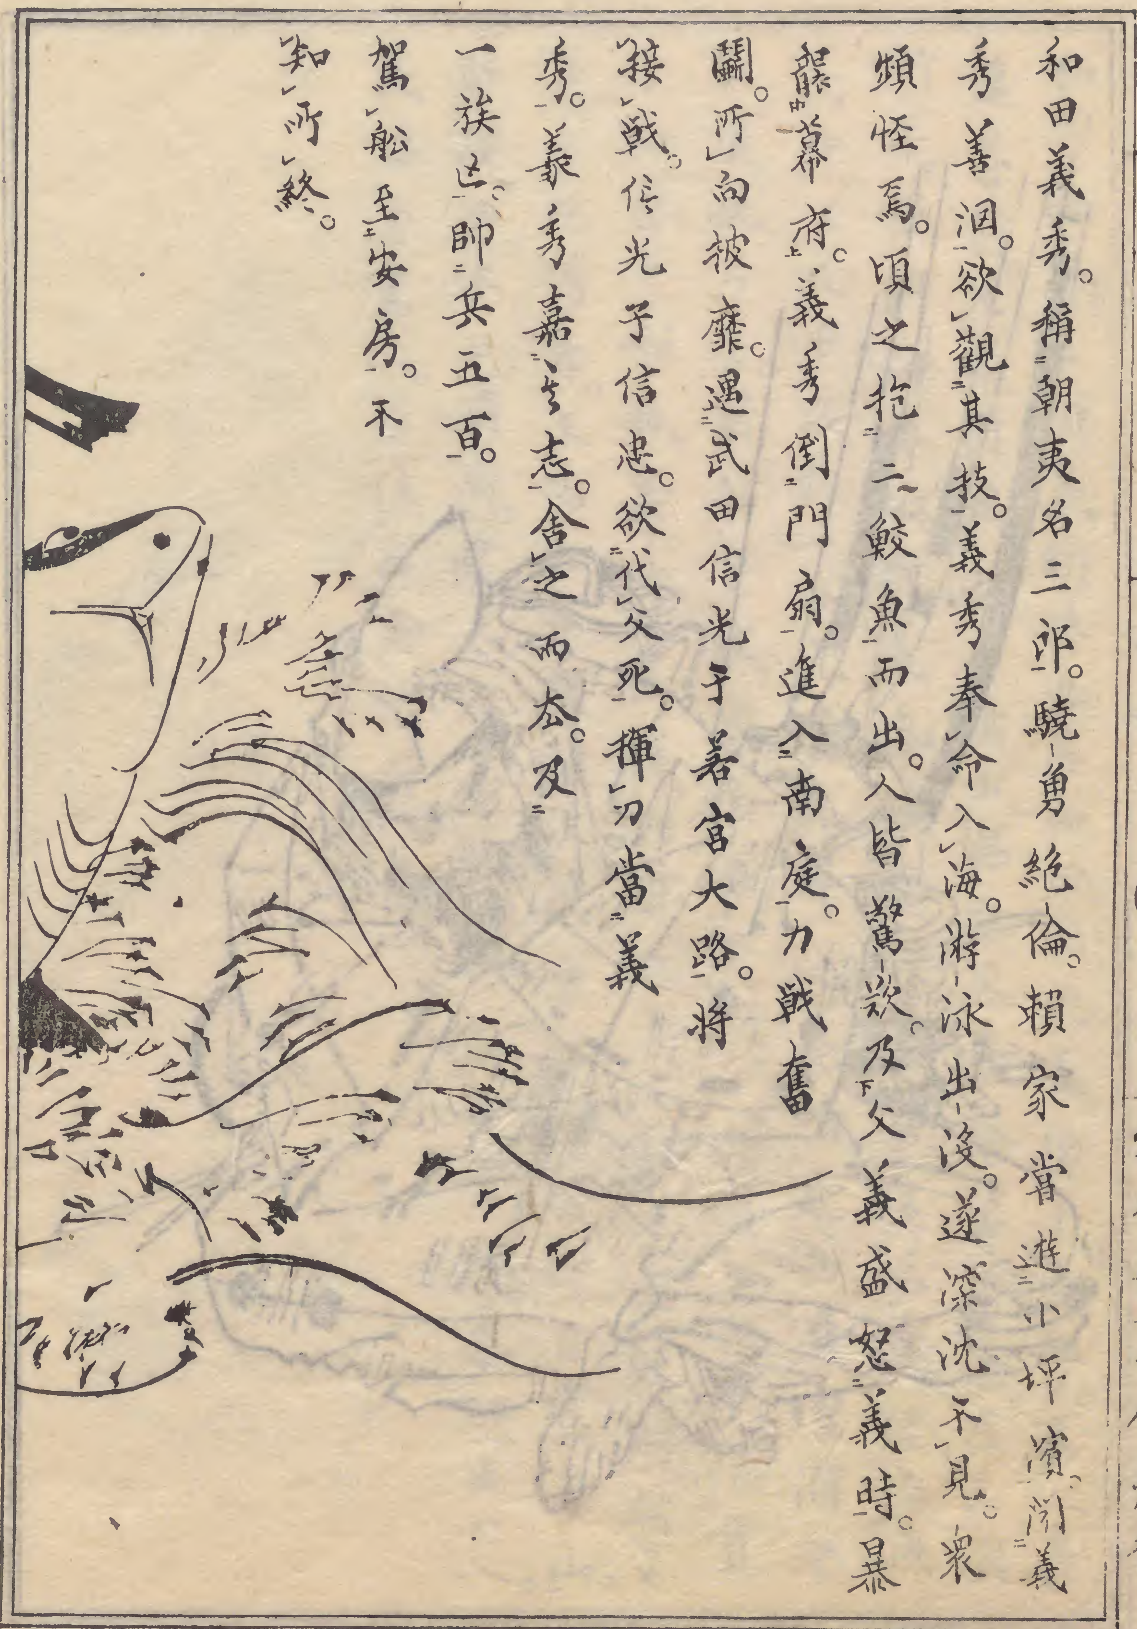 和田義秀。稱朝夷名三郎。驍勇絶倫。賴家嘗遊小坪濱。聞義
秀善泅。欲觀其技。義秀奉命入海。游泳出没。遂深沈不見。衆
頻怪焉。頃之抱二鮫魚而出。人皆驚歎。及父義盛怒義時。暴
襲幕府。義秀倒門扇。進入南庭。力戦奮
鬭。所向披靡。遇武田信光于若宮大路。将
接戦。信光子信忠。欲代父死。揮刃當義
秀。義秀嘉其志。舎之而去。及
一族亡。帥兵五百。
駕舩至安房。不
知所終。